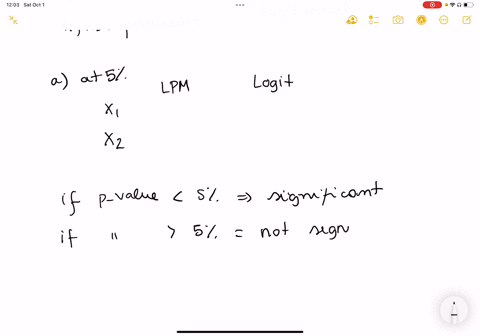 12:03 Sat Oct 1
a) at 5% LPM Logit
X1
X2
if p-value < 5% ⇒ significant
if " > 5% = not sign